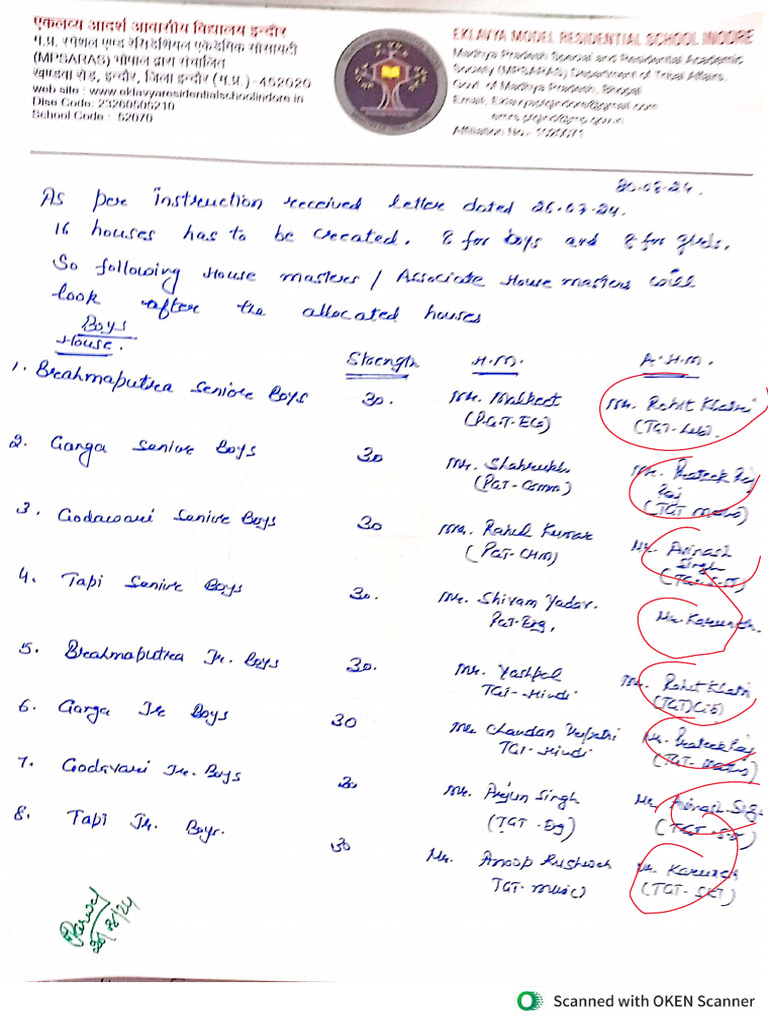 एकलव्य आदर्श आवासीय विद्यालय इन्दौर
म.प्र. स्पेशल एण्ड रेसिडेंशियल एकेडेमिक सोसायटी
(MPSARAS) भोपाल द्वारा संचालित
खण्डवा रोड, इन्दौर, जिला इन्दौर (म.प्र.)-452020
web site : www.eklavyaresidentialschoolindore.in
Dise Code: 23260505210
School Code : 52070
EKLAVYA MODEL RESIDENTIAL SCHOOL INDORE
Madhya Pradesh Special and Residential Academic
Society (MPSARAS), Department of Tribal Affairs,
Govt. of Madhya Pradesh, Bhopal
Affiliation No.-
As per instruction received letter dated 26.07.24.
16 houses has to be created. 8 for boys and 8 for girls.
So following House masters / Associate House masters will
look after the allocated houses
Boys
House.
Strength H.M. A.H.M.
1. Brahmaputra Seniore Boys 30. Mr. Malkeet Mr. Rohit Khatri
(PGT-ECO) (TGT-Lib).
2. Ganga Senior Boys 30 Mr. Shahrukh Mr. Prateek Raj
Raj
(PGT-Comm) (TGT Maths)
3. Godawari Senior Boys 30 Mr. Rahul Kumar Mr. Avinash
Singh
(PGT-CHM)
4. Tapi Senior Boys 30. Mr. Shivam Yadav.
PGT-Eng.
5. Brahmaputra Jr. Boys 30. Mr. Yashpal Mr. Rohit Khatri
TGT-Hindi (TGT)Lib)
6. Ganga Jr Boys 30 Mr Chandan Mr. Prateek Raj
TGT-Hindi (TGT-Maths)
7. Godavari Jr. Boys 30 Mr. Arjun Singh Mr. Avinash Sig
(TGT-Eng)
8. Tapi Jr. Boys. 30 Mr. Anoop
TGT-Music) (TGT-SKT)
Scanned with OKEN Scanner